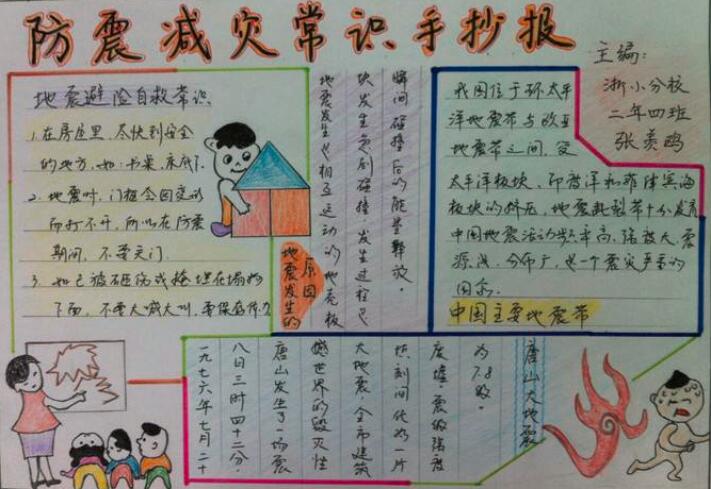 防震减灾常识手抄报
主编:
浙小分校
二年四班
张
地震避险自救常识
1.在房屋里,尽快到安全
的地方,如:书桌,床底下.
2.地震时,门框会因变形
而打不开,所以在防震
期间,不要关门.
3.如已被砸伤或掩埋在塌物
下面,不要大喊大叫,要保存体力
地震发生的
原因
地震发生也相互运动的地壳板
块发生急剧碰撞,发生过程已
瞬间碰撞后的能量释放.
我国位于环太平
洋地震带与欧亚
地震带之间,受
太平洋板块,印度洋和菲律宾海
板块的挤压,地震断裂带十分发育
中国地震活动频率高,强度大,震
源浅,分布广,是一个震灾严重的
国家.
中国主要地震带
唐山大地震
一九七六年七月二十
八日三时四十二分.
唐山发生了一场震
撼世界的毁灭性
大地震,个市建筑
顷刻间化为一片
废墟.震级强度
为7.8级.